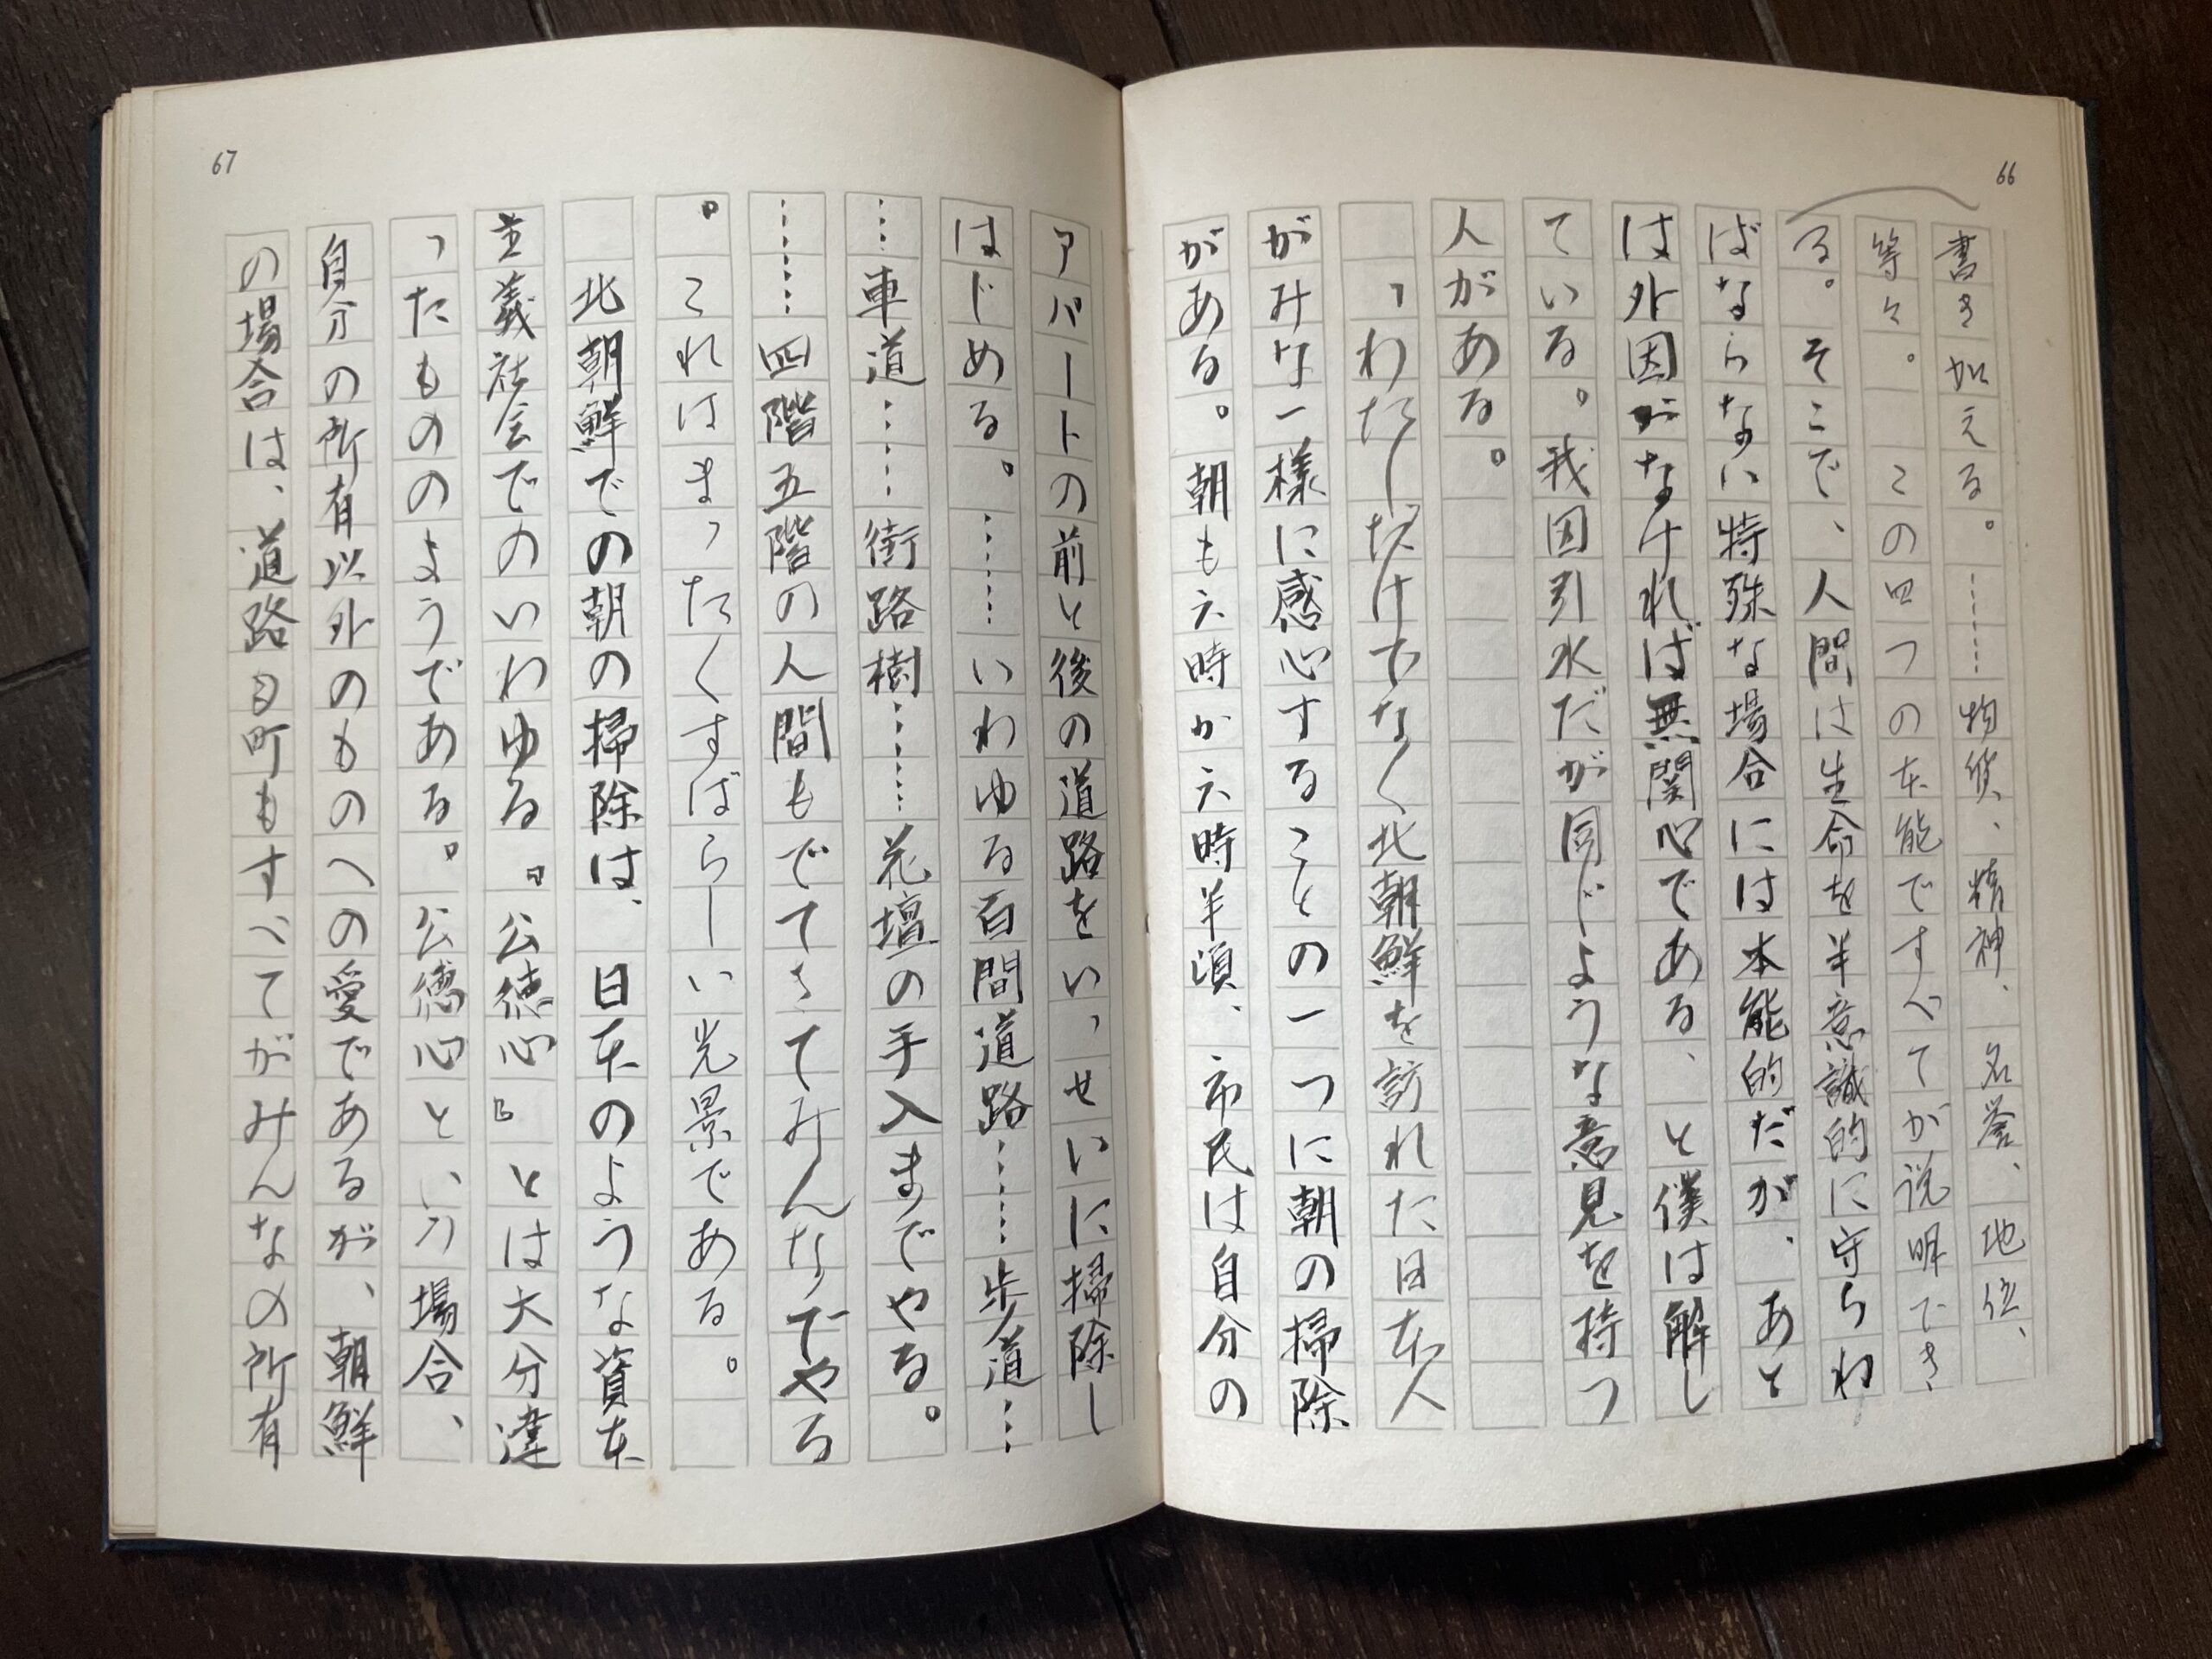 66
書き加える。……物質、精神、名誉、地位、
等々。 この四つの本能ですべてが説明でき
る。そこで、人間は生命を半意識的に守られ
ばならない特殊な場合には本能的だが、あと
は外因がなければ無関心である、と僕は解し
ている。我田引水だが同じような意見を持つ
人がある。
「わたしだけでなく北朝鮮を訪れた日本人
がみな一様に感心することの一つに朝の掃除
がある。朝も六時か六時半頃、市民は自分の
67
アパートの前と後の道路をいっせいに掃除し
はじめる。……いわゆる百間道路……歩道…
…車道……街路樹……花壇の手入までやる。
……四階五階の人間もでてきてみんなでやる
。これはまったくすばらしい光景である。
北朝鮮での朝の掃除は、日本のような資本
主義社会でのいわゆる『公徳心』とは大分違
ったもののようである。公徳心という場合、
自分の所有以外のものへの愛であるが、朝鮮
の場合は、道路も町もすべてがみんなの所有